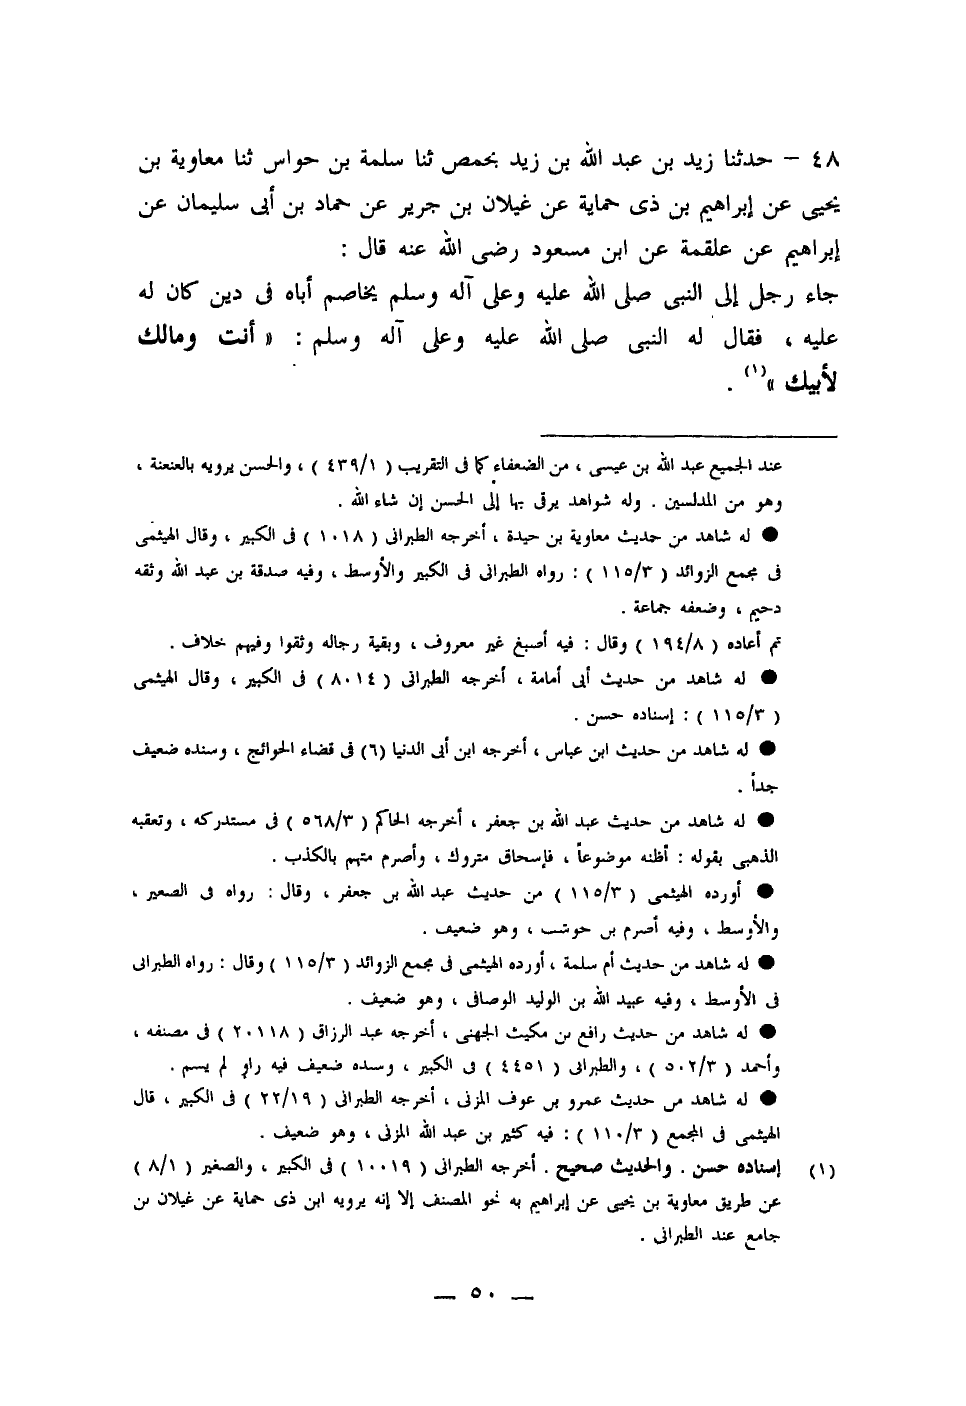 ٤٨ – حدثنا زيد بن عبد الله بن زيد بحمص ثنا سلمة بن حواس ثنا معاوية بن
يحيى عن إبراهيم بن ذى حماية عن غيلان بن جرير عن حماد بن أبى سليمان عن
إبراهيم عن علقمة عن ابن مسعود رضى الله عنه قال :
جاء رجل إلى النبى صلى الله عليه وعلى آله وسلم يخاصم أباه فى دين كان له
عليه ، فقال له النبى صلى الله عليه وعلى آله وسلم : « أنت ومالك
لأبيك »(١) .
عند الجميع عبد الله بن عيسى ، من الضعفاء كما فى التقريب ( ٤٣٩/١ ) ، والحسن يرويه بالعنعنة ،
وهو من المدلسين . وله شواهد يرقى بها إلى الحسن إن شاء الله .
● له شاهد من حديث معاوية بن حيدة ، أخرجه الطبرانى ( ١٠١٨ ) فى الكبير ، وقال الهيثمى
فى مجمع الزوائد ( ١١٥/٣ ) : رواه الطبرانى فى الكبير والأوسط ، وفيه صدقة بن عبد الله وثقه
دحيم ، وضعفه جماعة .
ثم أعاده ( ١٩٤/٨ ) وقال : فيه أصبغ غير معروف ، وبقية رجاله وثقوا وفيهم خلاف .
● له شاهد من حديث أبى أمامة ، أخرجه الطبرانى ( ٨٠١٤ ) فى الكبير ، وقال الهيثمى
( ١١٥/٣ ) : إسناده حسن .
● له شاهد من حديث ابن عباس ، أخرجه ابن أبى الدنيا (٦) فى قضاء الحوائج ، وسنده ضعيف
جداً .
● له شاهد من حديث عبد الله بن جعفر ، أخرجه الحاكم ( ٥٦٨/٣ ) فى مستدركه ، وتعقبه
الذهبى بقوله : أظنه موضوعاً ، فإسحاق متروك ، وأصرم متهم بالكذب .
● أورده الهيثمى ( ١١٥/٣ ) من حديث عبد الله بن جعفر ، وقال : رواه فى الصغير ،
والأوسط ، وفيه أصرم بن حوشب ، وهو ضعيف .
● له شاهد من حديث أم سلمة ، أورده الهيثمى فى مجمع الزوائد ( ١١٥/٣ ) وقال : رواه الطبرانى
فى الأوسط ، وفيه عبيد الله بن الوليد الوصافى ، وهو ضعيف .
● له شاهد من حديث رافع بن مكيث الجهنى ، أخرجه عبد الرزاق ( ٢٠١١٨ ) فى مصنفه ،
وأحمد ( ٥٠٢/٣ ) ، والطبرانى ( ٤٤٥١ ) فى الكبير ، وسنده ضعيف فيه راوٍ لم يسم .
● له شاهد من حديث عمرو بن عوف المزنى ، أخرجه الطبرانى ( ٢٢/١٩ ) فى الكبير ، قال
الهيثمى فى المجمع ( ١١٠/٣ ) : فيه كثير بن عبد الله المزنى ، وهو ضعيف .
(١) إسناده حسن . والحديث صحيح . أخرجه الطبرانى ( ١٠٠١٩ ) فى الكبير ، والصغير ( ٨/١ )
عن طريق معاوية بن يحيى عن إبراهيم به نحو المصنف إلا إنه يرويه ابن ذى حماية عن غيلان بن
جامع عند الطبرانى .
— ٥٠ —